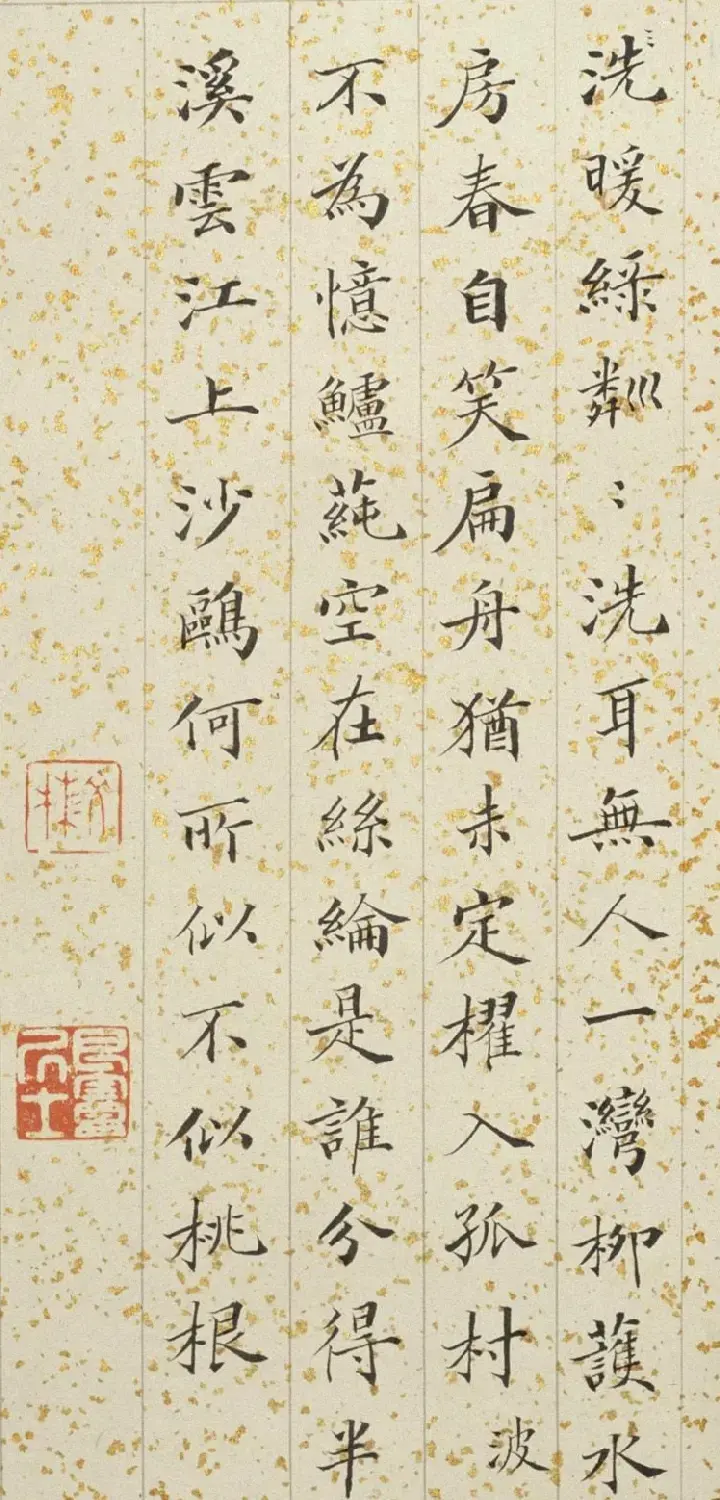 洗暖綠粼〻洗耳無人一灣柳護水
房春自笑扁舟猶未定櫂入孤村波
不為憶鱸蒓空在絲綸是誰分得半
溪雲江上沙鷗何所似不似桃根